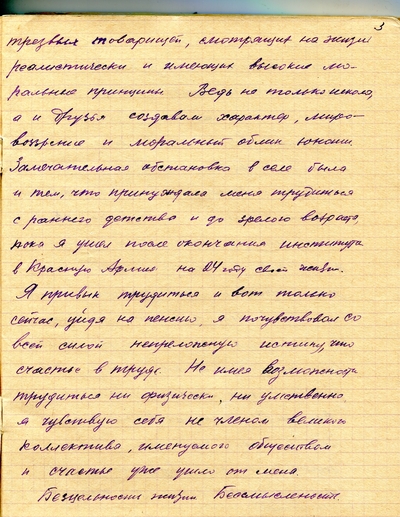 3
трезвых товарищей, смотрящих на жизнь
реалистически и имеющих высокие мо-
ральные принципы. Ведь не только школа,
а и друзья создавали характер, миро-
воззрение и моральный облик юноши.
Замечательная обстановка в селе была
и тем, что принуждала меня трудиться
с раннего детства и до зрелого возраста,
пока я ушел после окончания института
в Красную Армию на 24 году своей жизни.
Я привык трудиться и вот только
сейчас, уйдя на пенсию, я почувствовал со
всей силой непреложную истину, что
счастье в труде. Не имея возможности
трудиться ни физически, ни умственно
я чувствую себя не членом великого
коллектива, именуемого обществом
и счастье уже ушло от меня.
Безцельность жизни. Бессмысленность.